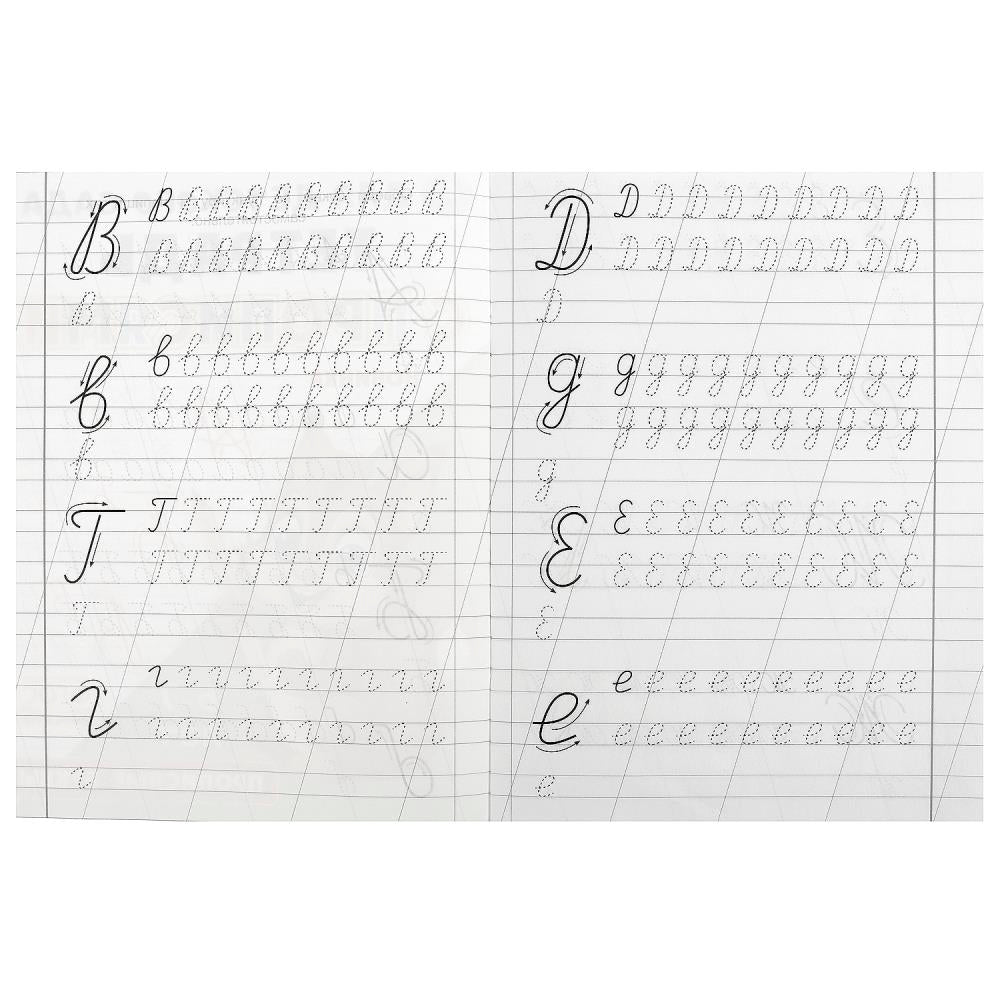 В В В В В В В В В В В
В В В В В В В В В В
В
в в в в в в в в в в в
в в в в в в в в в в
в
Г Г Г Г Г Г Г Г Г Г
Г Г Г Г Г Г Г Г Г
Г
г г г г г г г г г г г
г г г г г г г г г г
г
Д Д Д Д Д Д Д Д Д Д
Д Д Д Д Д Д Д Д Д
Д
д д д д д д д д д д д
д д д д д д д д д д
д
Е Е Е Е Е Е Е Е Е Е Е
Е Е Е Е Е Е Е Е Е Е
Е
е е е е е е е е е е е
е е е е е е е е е е
е